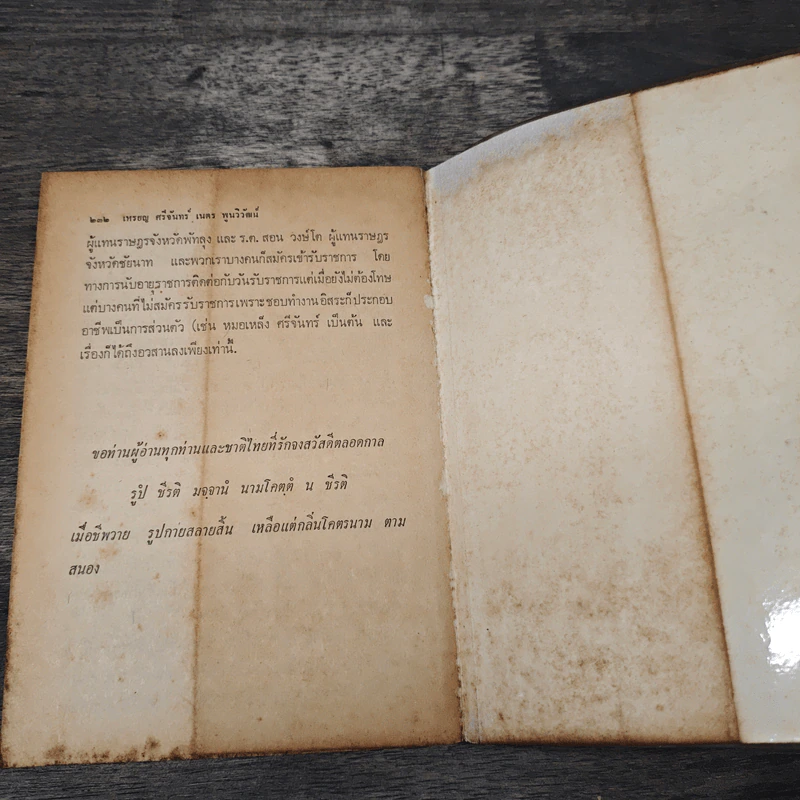 ๒๓๒ เหรียญ ศรีจันทร์ เนตร พูนวิวัฒน์
ผู้แทนราษฎรจังหวัดพัทลุง และ ร.ต. สอน วงษ์โต ผู้แทนราษฎร
จังหวัดชัยนาท และพวกเราบางคนก็สมัครเข้ารับราชการ โดย
ทางการนับอายุราชการติดต่อกับวันรับราชการแต่เมื่อยังไม่ต้องโทษ
แต่บางคนที่ไม่สมัครรับราชการเพราะชอบทำงานอิสระก็ประกอบ
อาชีพเป็นการส่วนตัว (เช่น หมอเหล็ง ศรีจันทร์ เป็นต้น และ
เรื่องก็ได้ถึงอวสานลงเพียงเท่านี้.
ขอท่านผู้อ่านทุกท่านและชาติไทยที่รักจงสวัสดีตลอดกาล
รูปํ ชีรติ มจฺจานํ นามโคตฺตํ น ชีรติ
เมื่อชีพวาย รูปกายสลายสิ้น เหลือแต่กลิ่นโคตรนาม ตาม
สนอง